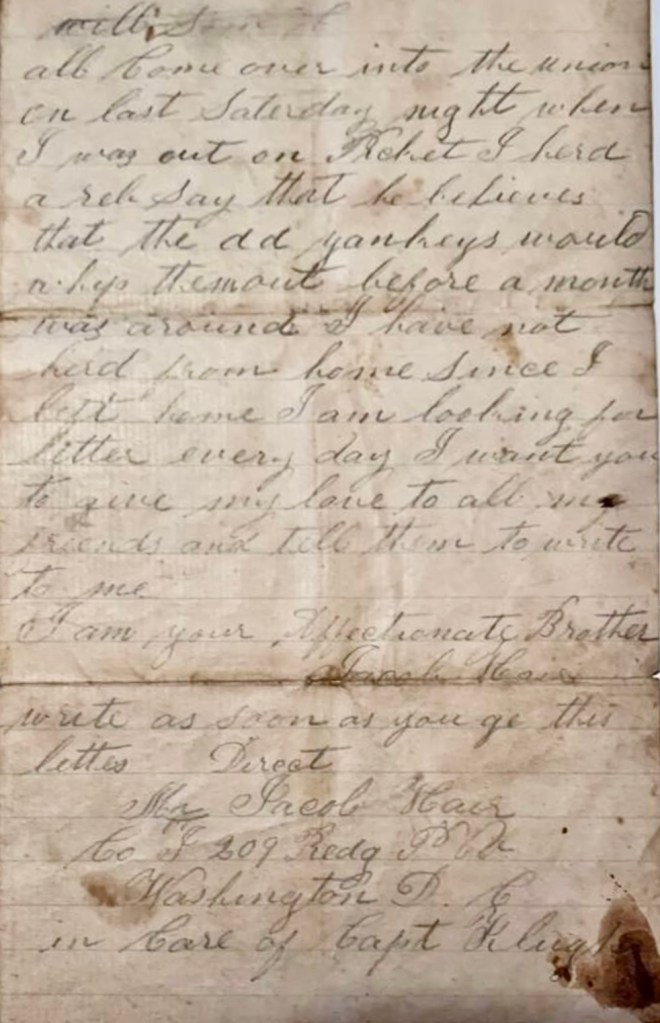 will
all Come over into the union
on last Saterday night when
I was out on Picket I herd
a reb Say that he believes
that the dd yankeys would
whyp themout before a month
was around I have not
herd from home since I
left home I am looking for
litter every day I want you
to give my love to all my
friends and tell them to write
to me
I am your Affectionate Brother
Jacob Hair
write as soon as you ge this
letter Direct
Mr Jacob Hair
Co I 209 Redg P V
Washington D. C
in Care of Capt